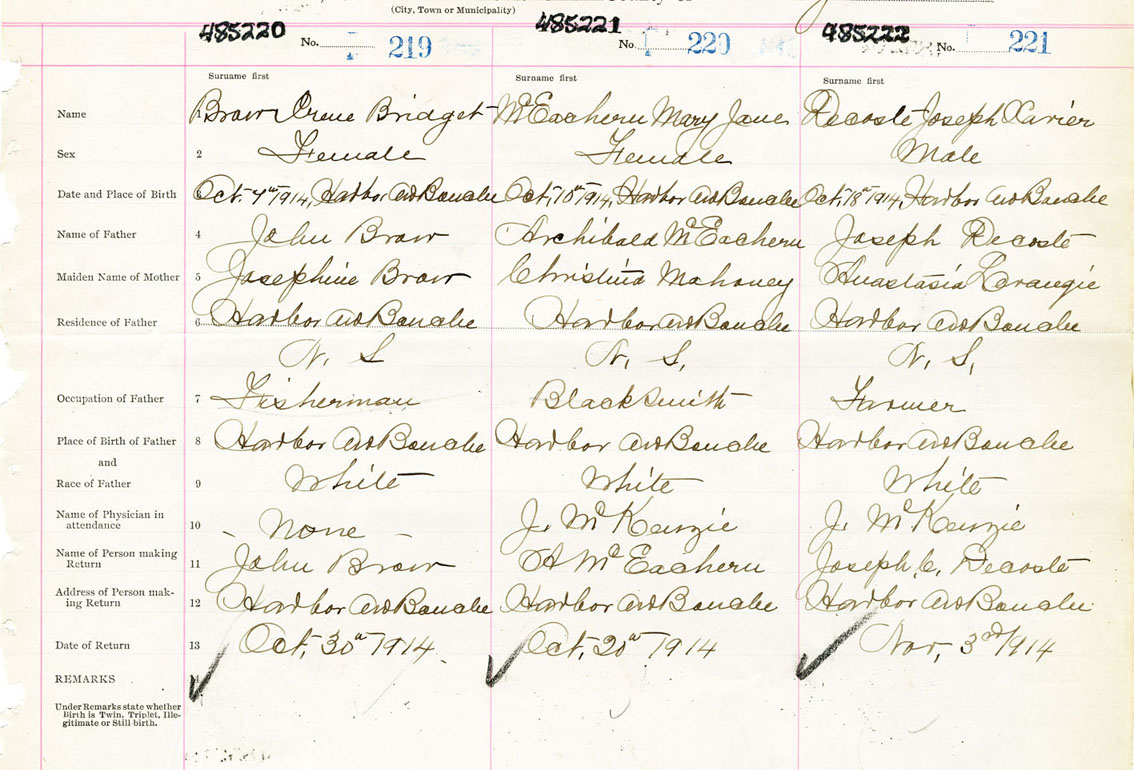 (City, Town or Municipality)
485220 485221 485222
No. 219 No. 220 No. 221
Surname first Surname first Surname first
Name 1 Brow Irene Bridget McEachern Mary Jane Decoste Joseph Xavier
Sex 2 Female Female Male
Date and Place of Birth 3 Oct. 7th 1914, Harbor au Bouche Oct, 10th 1914, Harbor au Bouche Oct, 18th 1914, Harbor au Bouche
Name of Father 4 John Brow Archibald McEachern Joseph Decoste
Maiden Name of Mother 5 Josephine Brow Christina Mahoney Anastasia
Residence of Father 6 Harbor au Bouche Harbor au Bouche Harbor au Bouche
N. S N. S, N. S,
Occupation of Father 7 Fisherman Blacksmith Farmer
Place of Birth of Father 8 Harbor au Bouche Harbor au Bouche Harbor au Bouche
and
Race of Father 9 White White White
Name of Physician in
attendance 10 - None - J. McKenzie J. McKenzie
Name of Person making
Return 11 John Brow A McEachern Joseph C. Decoste
Address of Person mak-
ing Return 12 Harbor au Bouche Harbor au Bouche Harbor au Bouche
Date of Return 13 Oct, 30th 1914 Oct, 20th 1914 Nov, 3rd 1914
REMARKS 14
Under Remarks state whether
Birth is Twin, Triplet, Ille-
gitimate or Still-birth.